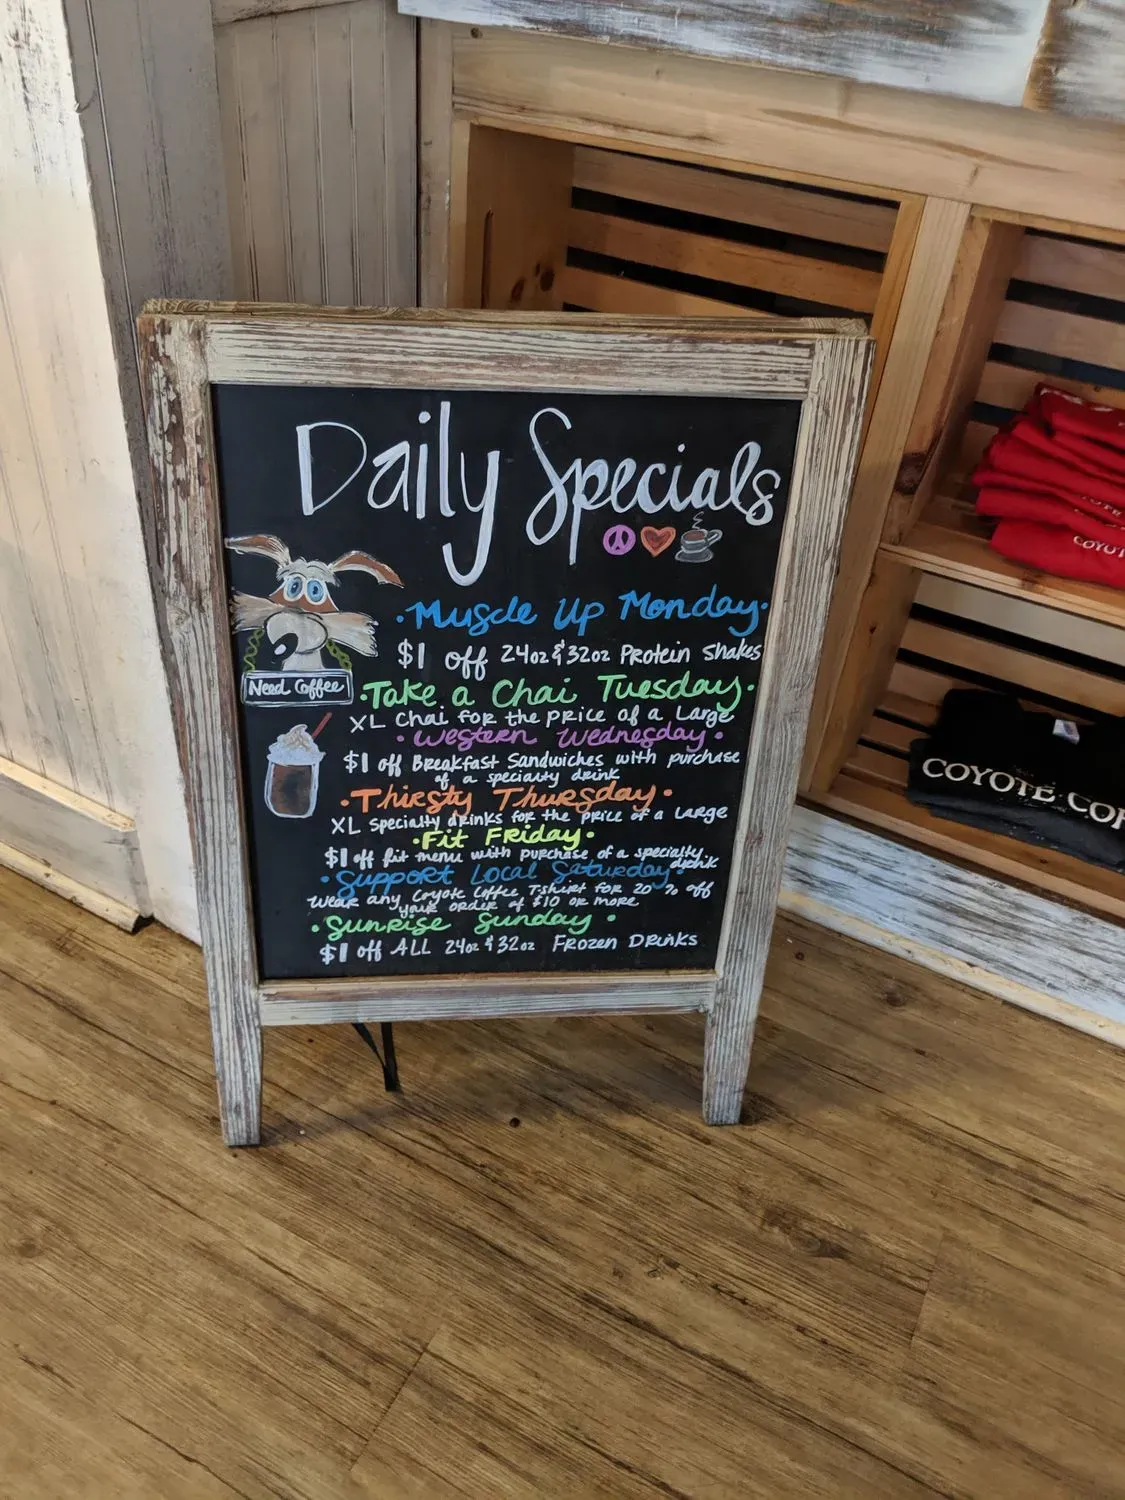 Daily Specials
Muscle Up Monday
$1 off 24oz & 32oz Protein Shakes
Need Coffee
Take a Chai Tuesday
XL Chai for the price of a Large
Western Wednesday
$1 off Breakfast Sandwiches with purchase
of a specialty drink
Thirsty Thursday
XL specialty drinks for the price of a Large
Fit Friday
$1 off fit menu with purchase of a specialty
drink
Support Local Saturday
Wear any Coyote Coffee T-shirt for 20% off
your order of $10 or more
Sunrise Sunday
$1 off ALL 24oz & 32oz Frozen Drinks
COYOTE COF